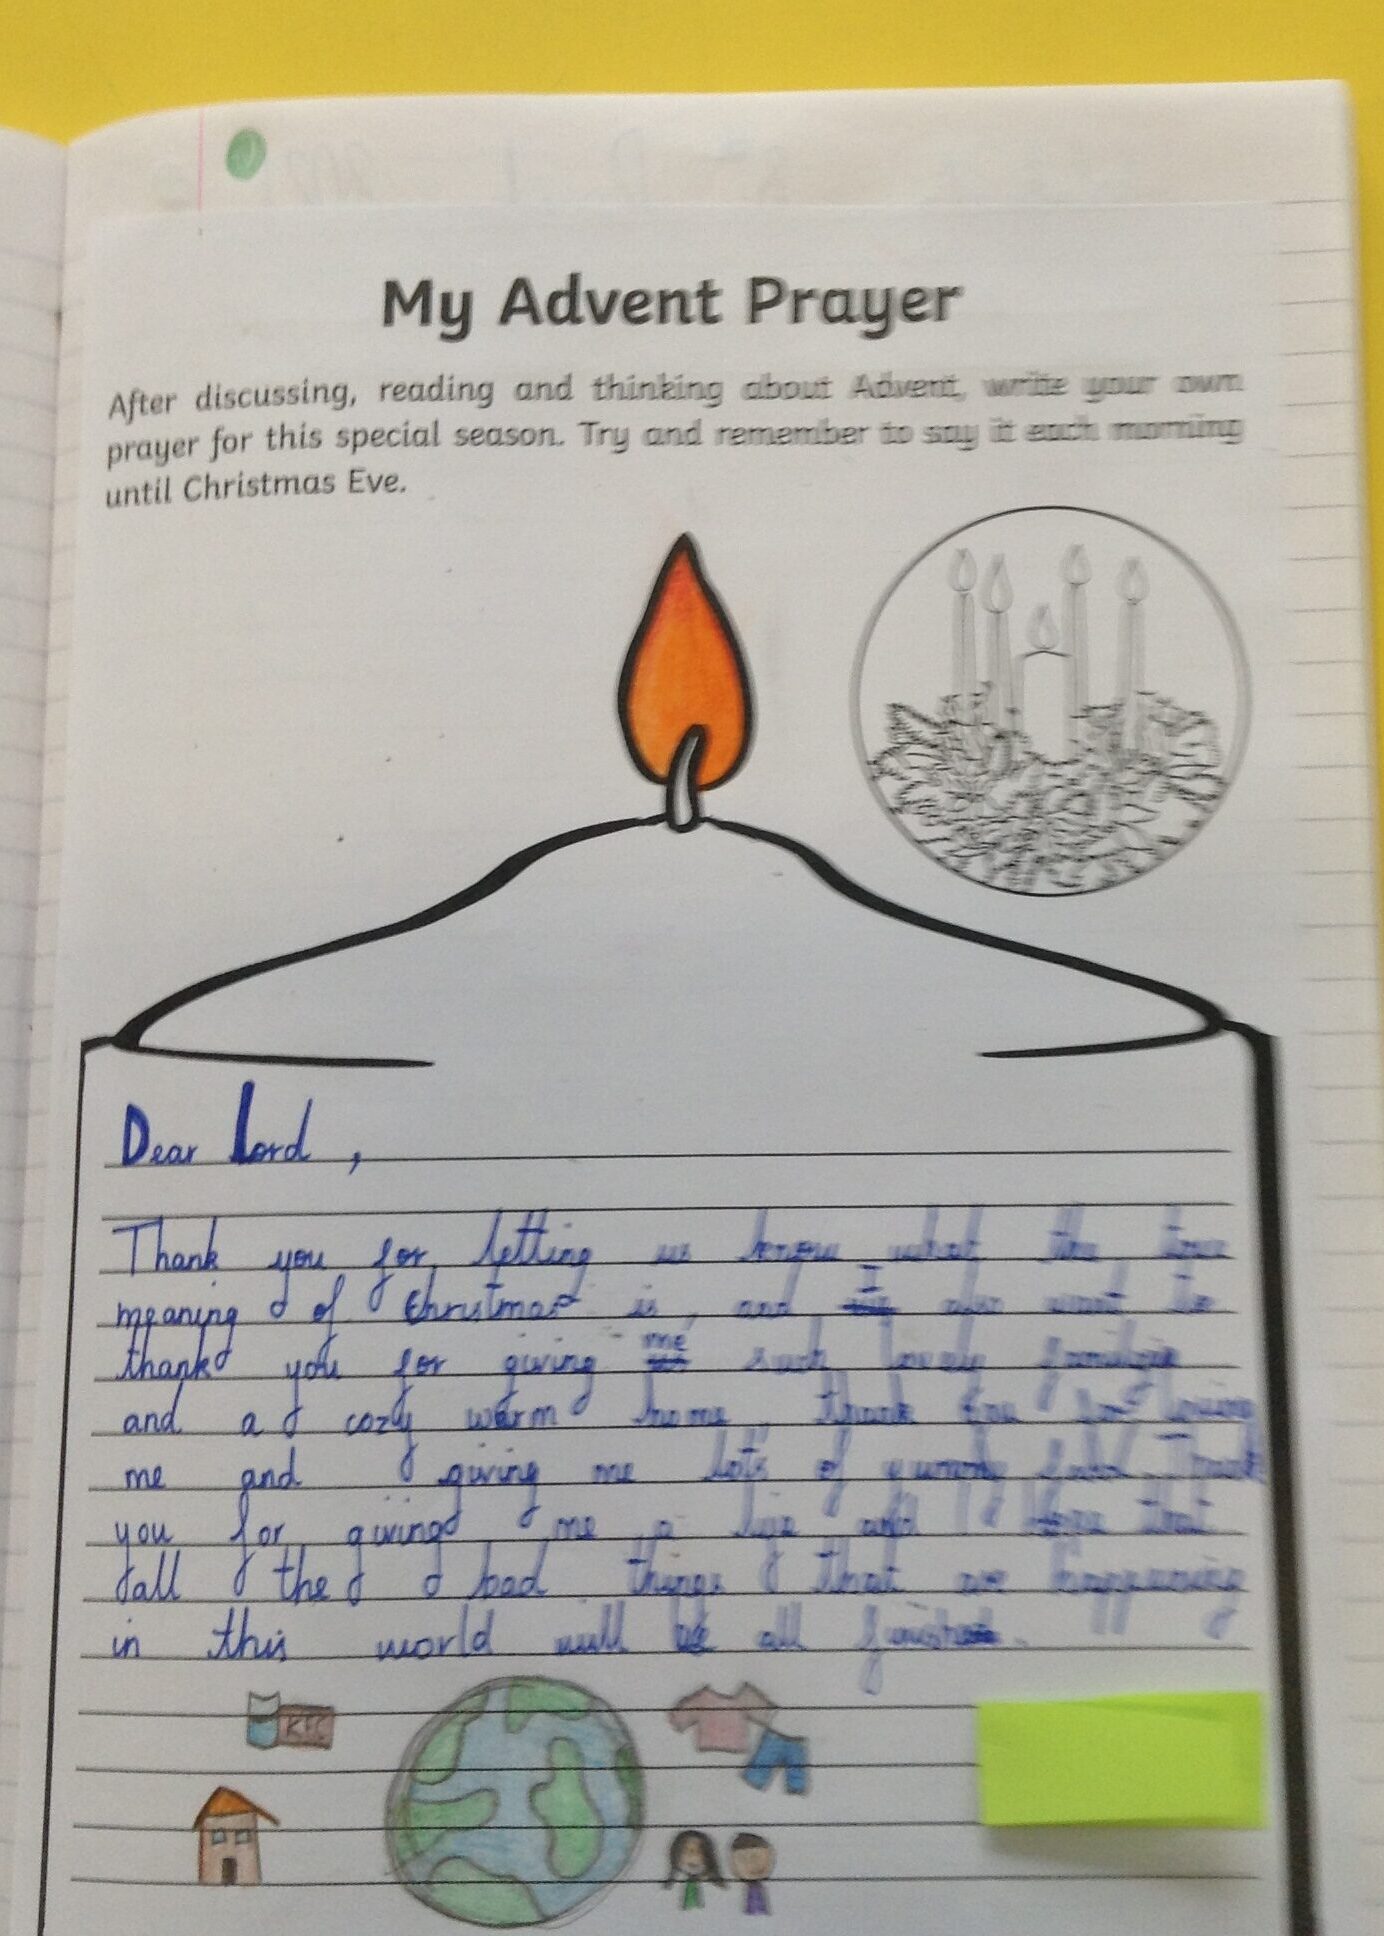 My Advent Prayer
After discussing, reading and thinking about Advent, write your own
prayer for this special season. Try and remember to say it each morning
until Christmas Eve.
Dear Lord,
Thank you for letting us know what the true
meaning of Christmas is, and I also want to
thank you for giving me such lovely
and a cozy warm home, thank you for loving
me and giving me lots of yummy food. Thank
you for giving me a life and I hope that
all the bad things that are happening
in this world will be all
KFC